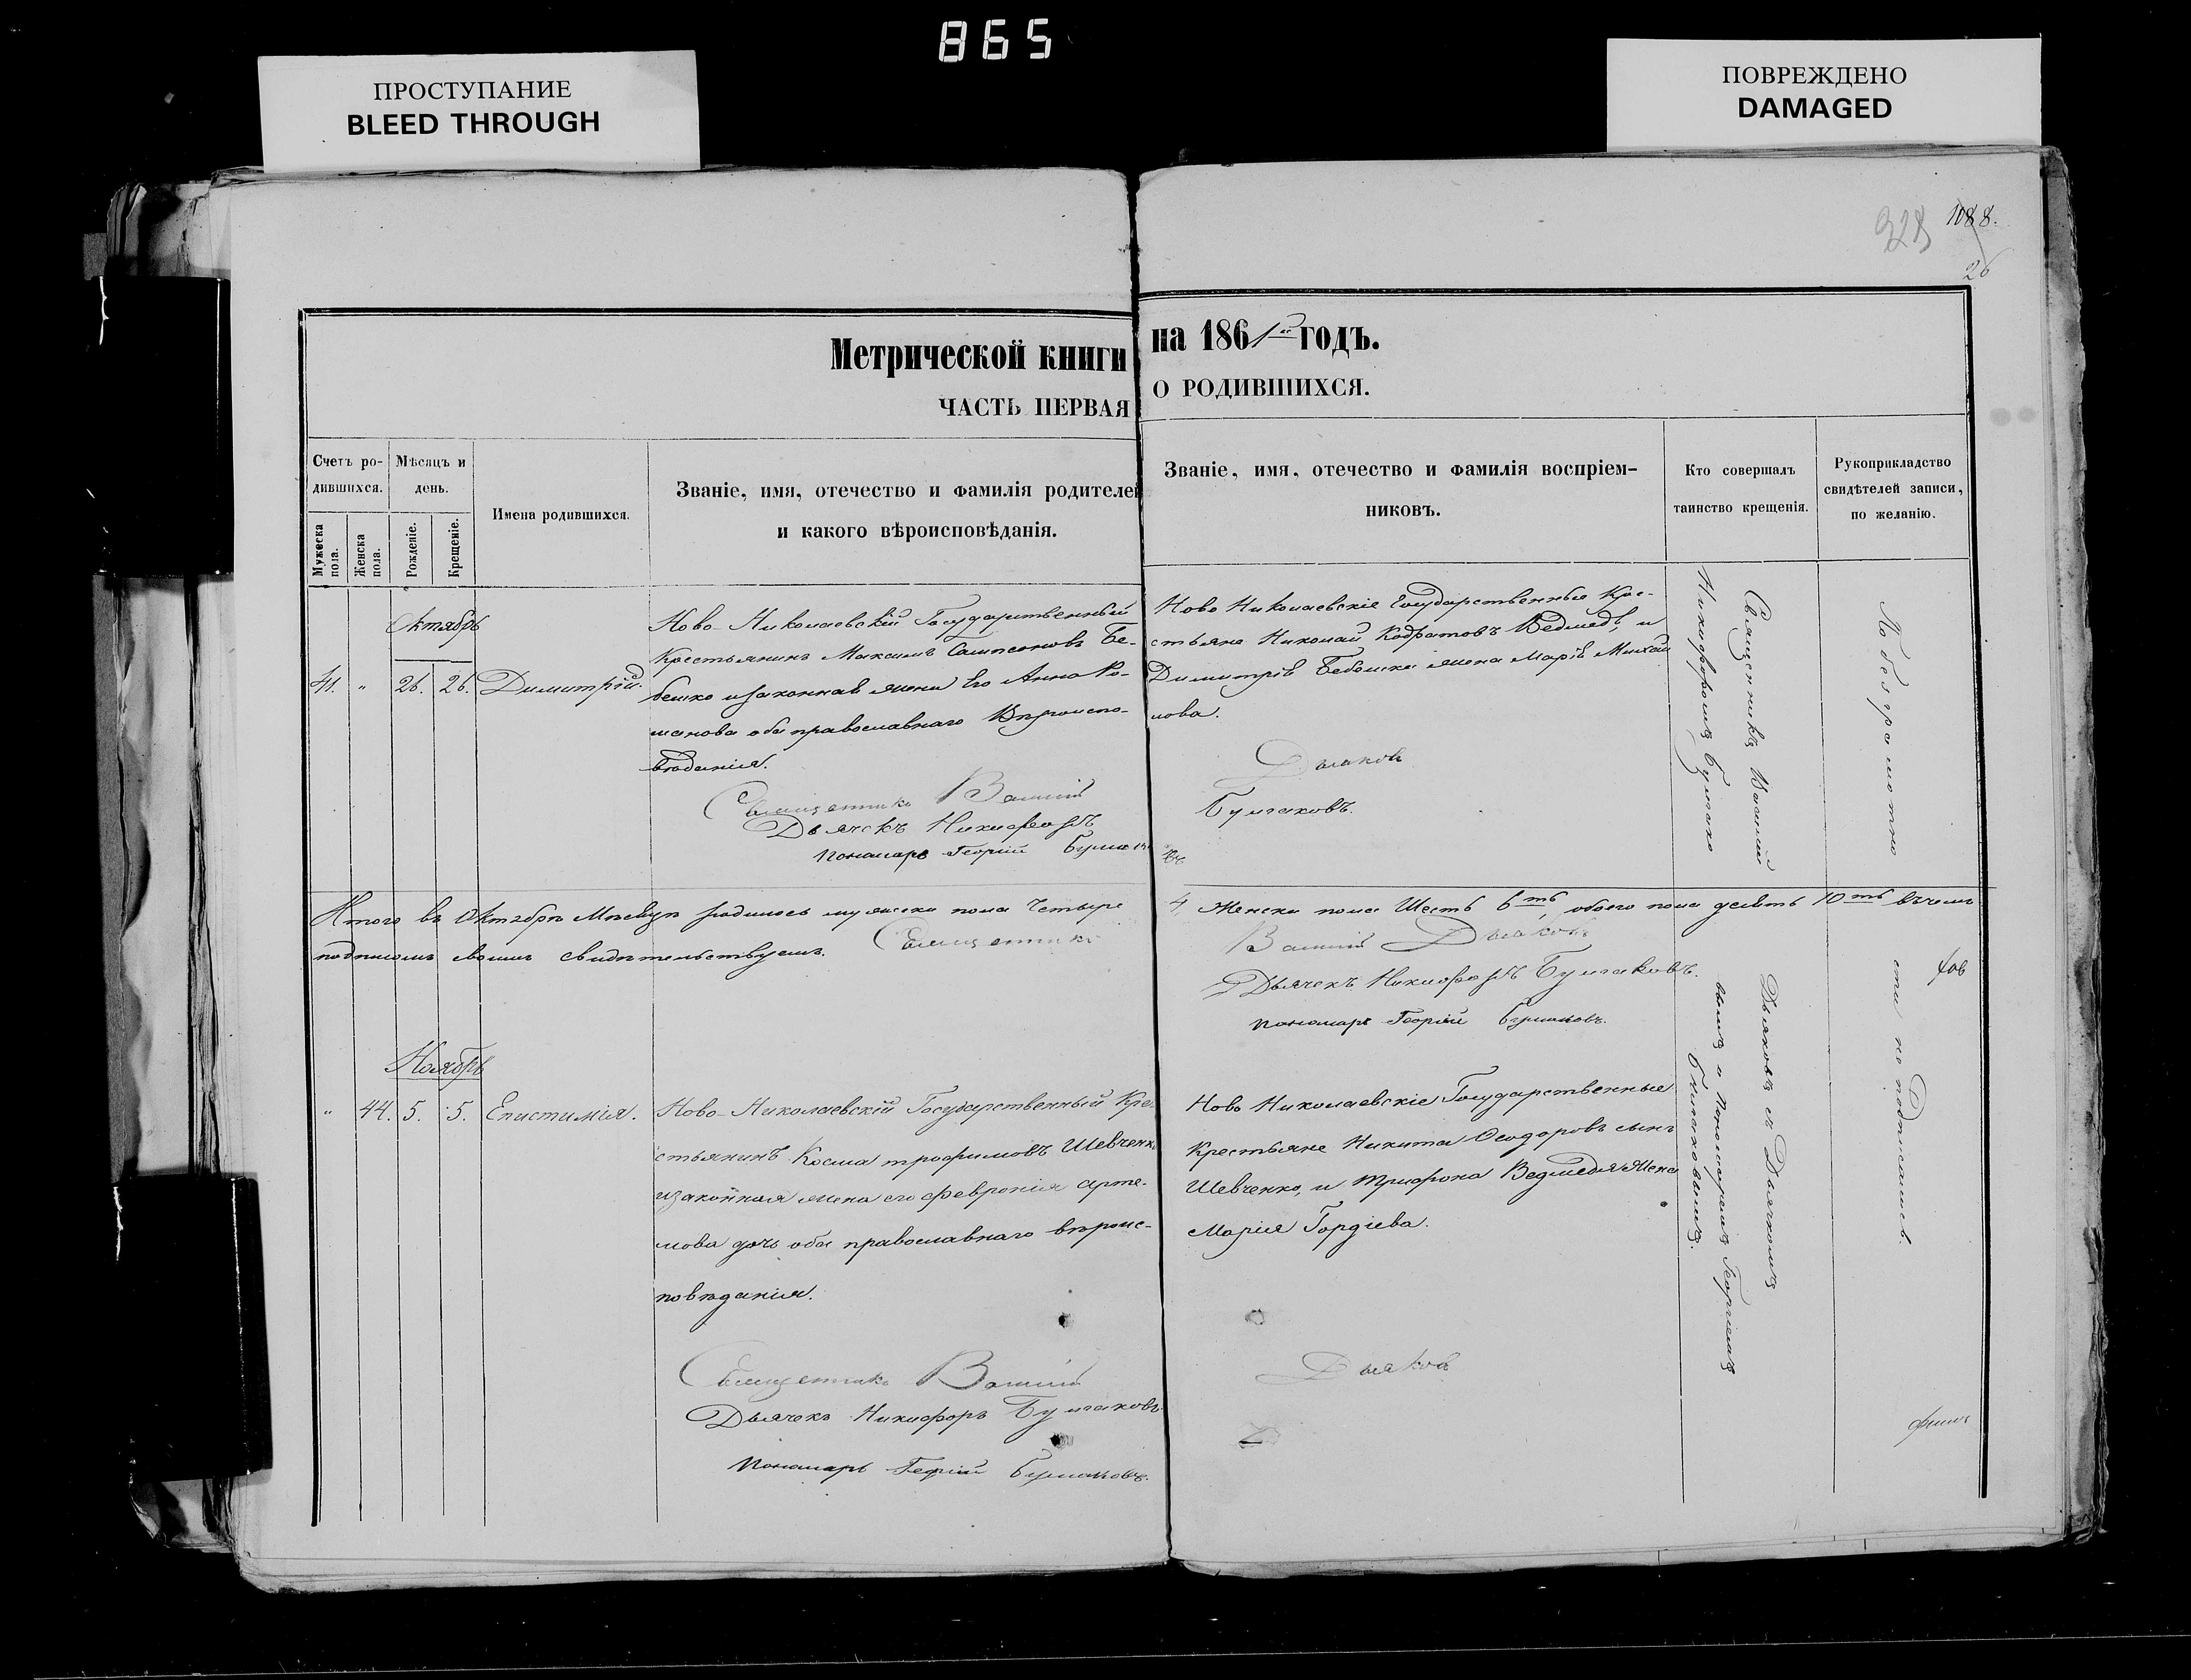 865
ПРОСТУПАНИЕ
BLEED THROUGH
ПОВРЕЖДЕНО
DAMAGED
328 1088.
26
Метрической книги на 1861 годъ.
ЧАСТЬ ПЕРВАЯ О РОДИВШИХСЯ.
Счетъ ро-
дившихся.
Мужеска
пола.
Женска
пола.
Мѣсяцъ и
день.
Рожденіе.
Крещеніе.
Имена родившихся.
Званіе, имя, отечество и фамилія родителей
и какого вѣроисповѣданія.
Званіе, имя, отечество и фамилія воспріем-
никовъ.
Кто совершалъ
таинство крещенія.
Рукоприкладство
свидѣтелей записи,
по желанію.
Октябрь
41. " 26. 26. Димитрій.
Ново-Николаевскій Государственный
Крестьянинъ Максимъ Сампсоновъ Бе-
бешко изаконная жена Его Анна Ро-
манова оба православнаго Вѣроиспо-
вѣданія.
Священникъ Василій Дьяковъ
Дьячекъ Никифоръ Булгаковъ.
Пономарь Георгій
Ново Николаевскіе Государственные Кре-
стьяне Николай Кодратовъ Ведмедь, и
Димитрія жена Марія Михай
лова.
Священникъ Василій Дьяковъ съ Дьячкомъ
Никифоромъ Булгако
вымъ и Пономаремъ Георгіемъ
Булгаковымъ.
По безграмотно
сти не подписались.
Итого въ Октябрѣ Мѣсяцѣ родилось мужеска пола Четыре 4 Женска пола Шесть 6ть, обоего пола десять 10ть въчемъ
подписомъ своимъ свидѣтельствуемъ. Священникъ Василій Дьяковъ
Дьячекъ Никифоръ Булгаковъ.
Пономарь Георгій Булгаковъ.
Ноябрь
" 44. 5. 5. Епистимія.
Ново-Николаевскій Государственный Кре-
стьянинъ Косма трофимовъ Шевченко
изаконная жена его Февронія Арте-
мова дочь оба православнаго вѣроис-
повѣданія.
Ново Николаевскіе Государственные
Крестьяне Никита Ѳеодоровъ сынъ
Шевченко, и Трифона Ведмедя Жена
Марія Гордіева.
Священникъ Василій Дьяковъ
Дьячекъ Никифоръ Булгаковъ
Пономарь Георгій Булгаковъ.